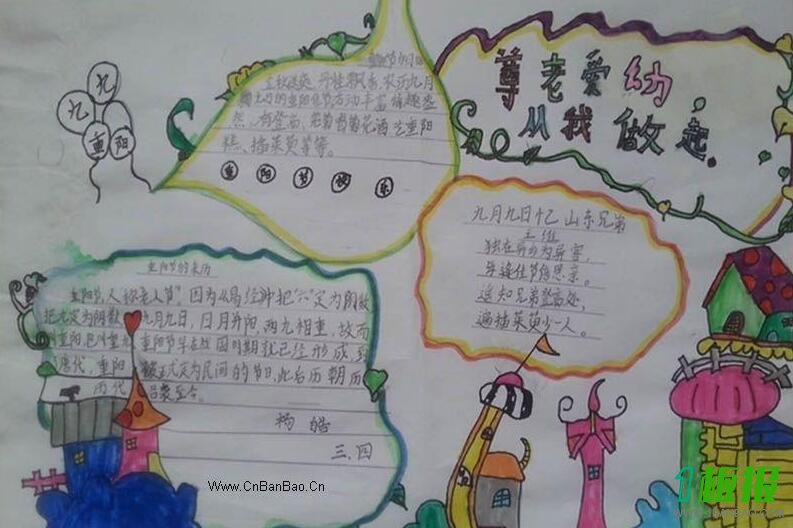 九九
重阳
尊老爱幼,
从我做起.
重阳节
九月
的重阳佳节活动丰富 情趣盎
然,有登高、赏菊 喝菊花酒 吃重阳
糕、插茱萸等等。
重 阳 节 快 乐
九月九日忆山东兄弟
王维
独在异乡为异客,
每逢佳节倍思亲。
遥知兄弟登高处,
遍插茱萸少一人。
重阳节的来历
重阳节,又称老人节"。因为《易经》中把"六"定为阴数
把九定为阳数 九月九日,日月并阳,两九相重,故而
重阳, 重阳节早在战国时期就已经形成,到
唐代,重阳 被正式定为民间的节日,此后历朝历
代 至今。
杨皓
三.四
Www.CnBanBao.Cn
板报